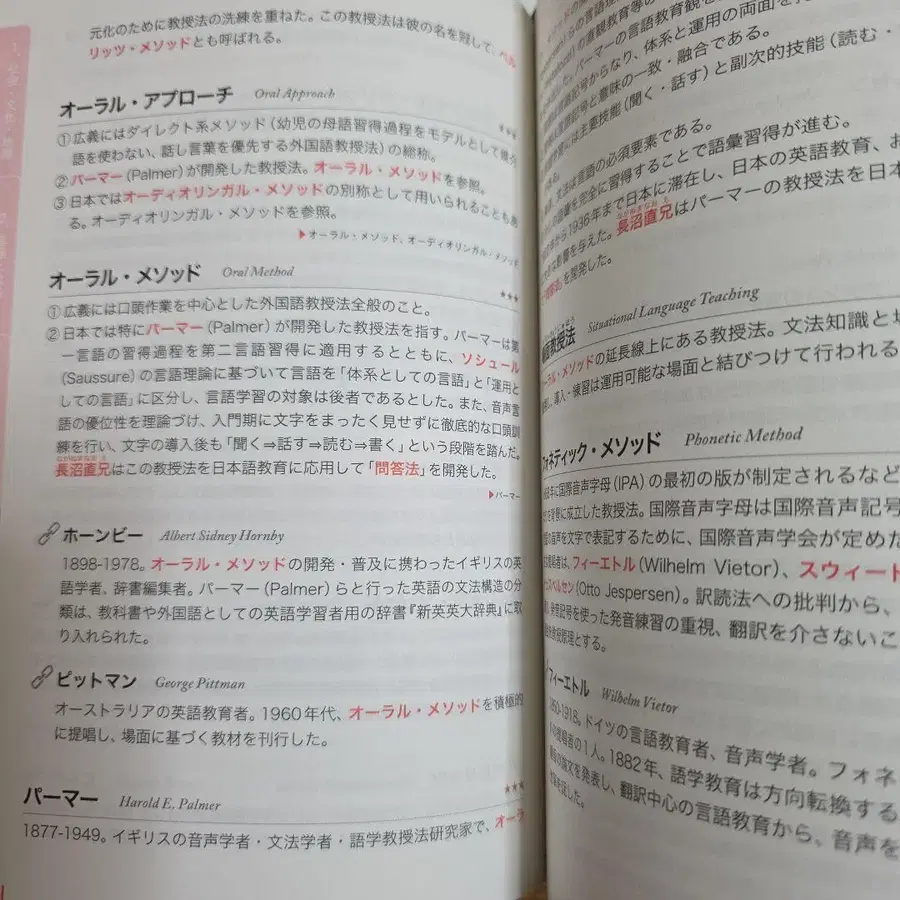 元化のために教授法の洗練を重ねた。この教授法は彼の名を冠して、ベル
リッツ・メソッドとも呼ばれる。
オーラル・アプローチ Oral Approach ★★★
①広義にはダイレクト系メソッド(幼児の母語習得過程をモデルとして媒介
語を使わない、話し言葉を優先する外国語教授法)の総称。
②パーマー(Palmer)が開発した教授法。オーラル・メソッドを参照。
③日本ではオーディオリンガル・メソッドの別称として用いられることもあ
る。オーディオリンガル・メソッドを参照。
▶オーラル・メソッド、オーディオリンガル・メソッド
オーラル・メソッド Oral Method ★★★
①広義には口頭作業を中心とした外国語教授法全般のこと。
②日本では特にパーマー(Palmer)が開発した教授法を指す。パーマーは第
一言語の習得過程を第二言語習得に適用するとともに、ソシュール
(Saussure)の言語理論に基づいて言語を「体系としての言語」と「運用と
しての言語」に区分し、言語学習の対象は後者であるとした。また、音声言
語の優位性を理論づけ、入門期に文字をまったく見せずに徹底的な口頭訓
練を行い、文字の導入後も「聞く⇒話す⇒読む⇒書く」という段階を踏んだ。
長沼直兄はこの教授法を日本語教育に応用して「問答法」を開発した。
▶パーマー
ホーンビー Albert Sidney Hornby
1898-1978。オーラル・メソッドの開発・普及に携わったイギリスの英
語学者、辞書編集者。パーマー(Palmer)らと行った英語の文法構造の分
類は、教科書や外国語としての英語学習者用の辞書『新英英大辞典』に取
り入れられた。
ピットマン George Pittman
オーストラリアの英語教育者。1960年代、オーラル・メソッドを積極的
に提唱し、場面に基づく教材を刊行した。
パーマー Harold E. Palmer ★★★
1877-1949。イギリスの音声学者・文法学者・語学教授法研究家で、オーラ
の言語理
の直観教育等の
した。パーマーの言語教育観を
記号からなり、体系と運用の両面を
記号と意味の一致・融合である。
には主要技能(聞く・話す)と副次的技能(読む・
文法は言語の必須要素である。
を完全に習得することで語彙習得が進む。
から1936年まで日本に滞在し、日本の英語教育、お
な影響を与えた。長沼直兄はパーマーの教授法を日本
を開発した。
教授法 Situational Language Teaching
ラル・メソッドの延長線上にある教授法。文法知識と
導入・練習は運用可能な場面と結びつけて行われる
フォネティック・メソッド Phonetic Method
年に国際音声字母(IPA)の最初の版が制定されるなど
を背景に成立した教授法。国際音声字母は国際音声記号
の音声を文字で表記するために、国際音声学会が定めた
者は、フィーエトル(Wilhelm Vietor)、スウィート
ェスペルセン(Otto Jespersen)。訳読法への批判から、
記号を使った発音練習の重視、翻訳を介さないこ
原理とする。
フィーエトル Wilhelm Vietor
1850-1918。ドイツの言語教育者、音声学者。フォネ
の提唱者の1人。1882年、語学教育は方向転換する
論文を発表し、翻訳中心の言語教育から、音声を
した。